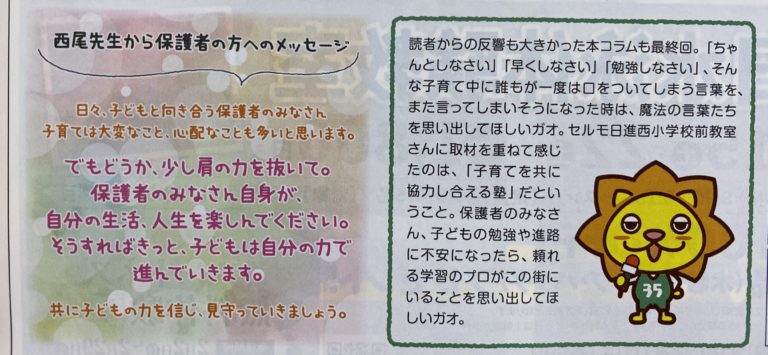 西尾先生から保護者の方へのメッセージ
日々、子どもと向き合う保護者のみなさん
子育ては大変なこと、心配なことも多いと思います。
でもどうか、少し肩の力を抜いて。
保護者のみなさん自身が、
自分の生活、人生を楽しんでください。
そうすればきっと、子どもは自分の力で
進んでいきます。
共に子どもの力を信じ、見守っていきましょう。
読者からの反響も大きかった本コラムも最終回。「ちゃ
んとしなさい」「早くしなさい」「勉強しなさい」、そん
な子育て中に誰もが一度は口をついてしまう言葉を、
また言ってしまいそうになった時は、魔法の言葉たち
を思い出してほしいガオ。セルモ日進西小学校前教室
さんに取材を重ねて感じ
たのは、「子育てを共に
協力し合える塾」だとい
うこと。保護者のみなさ
ん、子どもの勉強や進路
に不安になったら、頼れ
る学習のプロがこの街に
いることを思い出してほ
しいガオ。
35